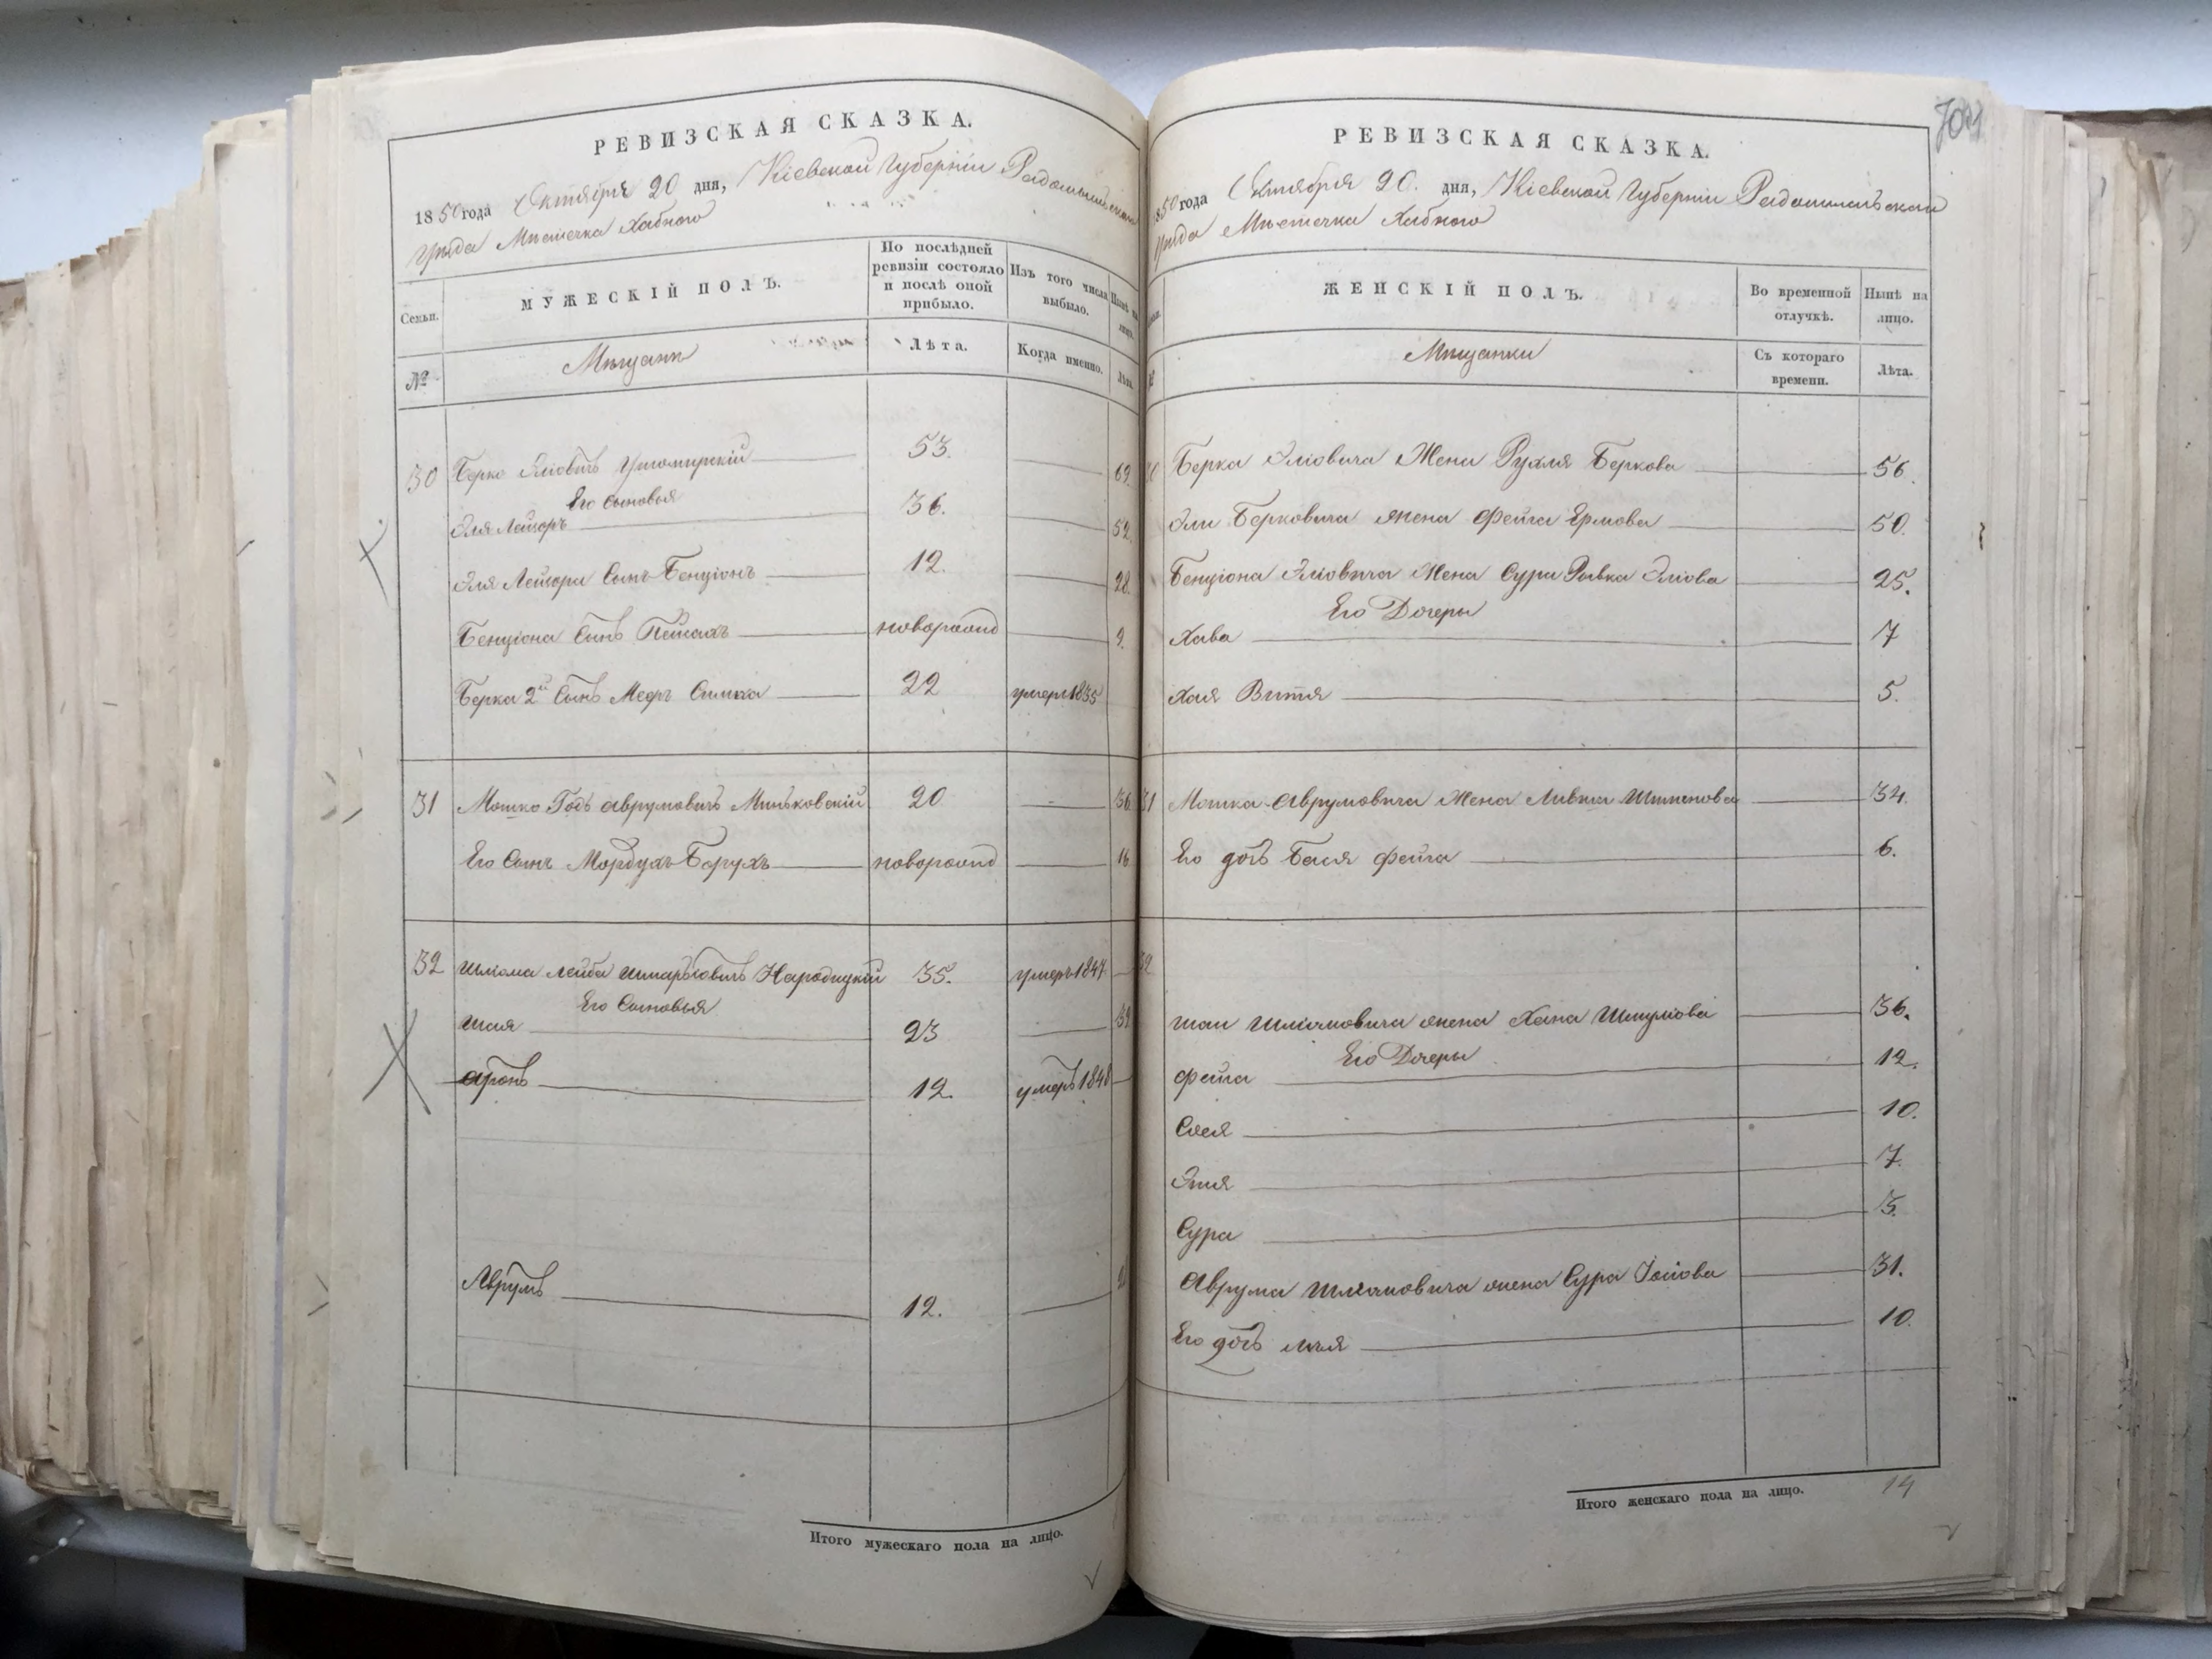 РЕВИЗСКАЯ СКАЗКА.
1850 года Октября 20 дня, Кіевской Губерніи Радомысльскаго
уѣзда Мѣстечка Хабного
Семьи.
МУЖЕСКІЙ ПОЛЪ.
По послѣдней ревизіи состояло и послѣ оной прибыло.
Изъ того числа выбыло.
Нынѣ на лицо.
№
Мѣщани
Лѣта.
Когда именно.
Лѣта.
30 Берко Эліовичъ Ушомирскій 53. 69.
Его Сыновья
Эля Лейзоръ 36. 52.
Эля Лейзора Сынъ Бенціонъ 12. 28.
Бенціона Сынъ Пейсахъ новорожд 9.
Берка 2й Сынъ Мееръ Симха 22 умеръ 1835
31 Мошко Годъ Аврумовичъ Миньковскій 20 36.
Его Сынъ Мордухъ Борухъ новорожд 16
32 Шліома Лейба Шмарьіовичъ Народицкій 35. умеръ 1847
Его Сыновья
Шая 23 39
Аронъ 12. умеръ 1848
Аврумъ 12.
Итого мужескаго пола на лицо.
РЕВИЗСКАЯ СКАЗКА.
1850 года Октября 20. дня, Кіевской Губерніи Радомысльскаго
уѣзда Мѣстечка Хабного
ЖЕНСКІЙ ПОЛЪ.
Во временной отлучкѣ.
Нынѣ на лицо.
№
Мѣщанки
Съ котораго времени.
Лѣта.
30 Берка Эліовича Жена Рухля Беркова 56.
Эли Берковича жена Фейга Ермова 50.
Бенціона Эліовича Жена Сура Ривка Эліова 25.
Его Дочеры
Хава 7
Хая Витя 5.
31 Мошка Аврумовича Жена Ливша Шимонова 34.
Его дочь Бася Фейга 6.
32
Шаи Шліомовича жена Хана Шмуліова 36.
Его Дочеры
Фейга 12.
Сося 10.
Этя 7.
Сура 3.
Аврума Шліомовича жена Сура Іосіова 31.
Его дочь 10.
Итого женскаго пола на лицо. 14